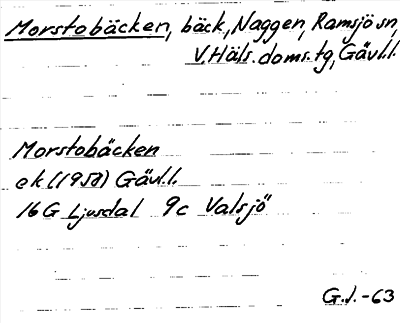 Morstobäcken, bäck, Naggen, Ramsjö sn,
V. Häls. doms.tg, Gävl.l.
Morstobäcken
ek. (1958) Gävl.l.
16G Ljusdal 9c Valsjö
G.J.-63